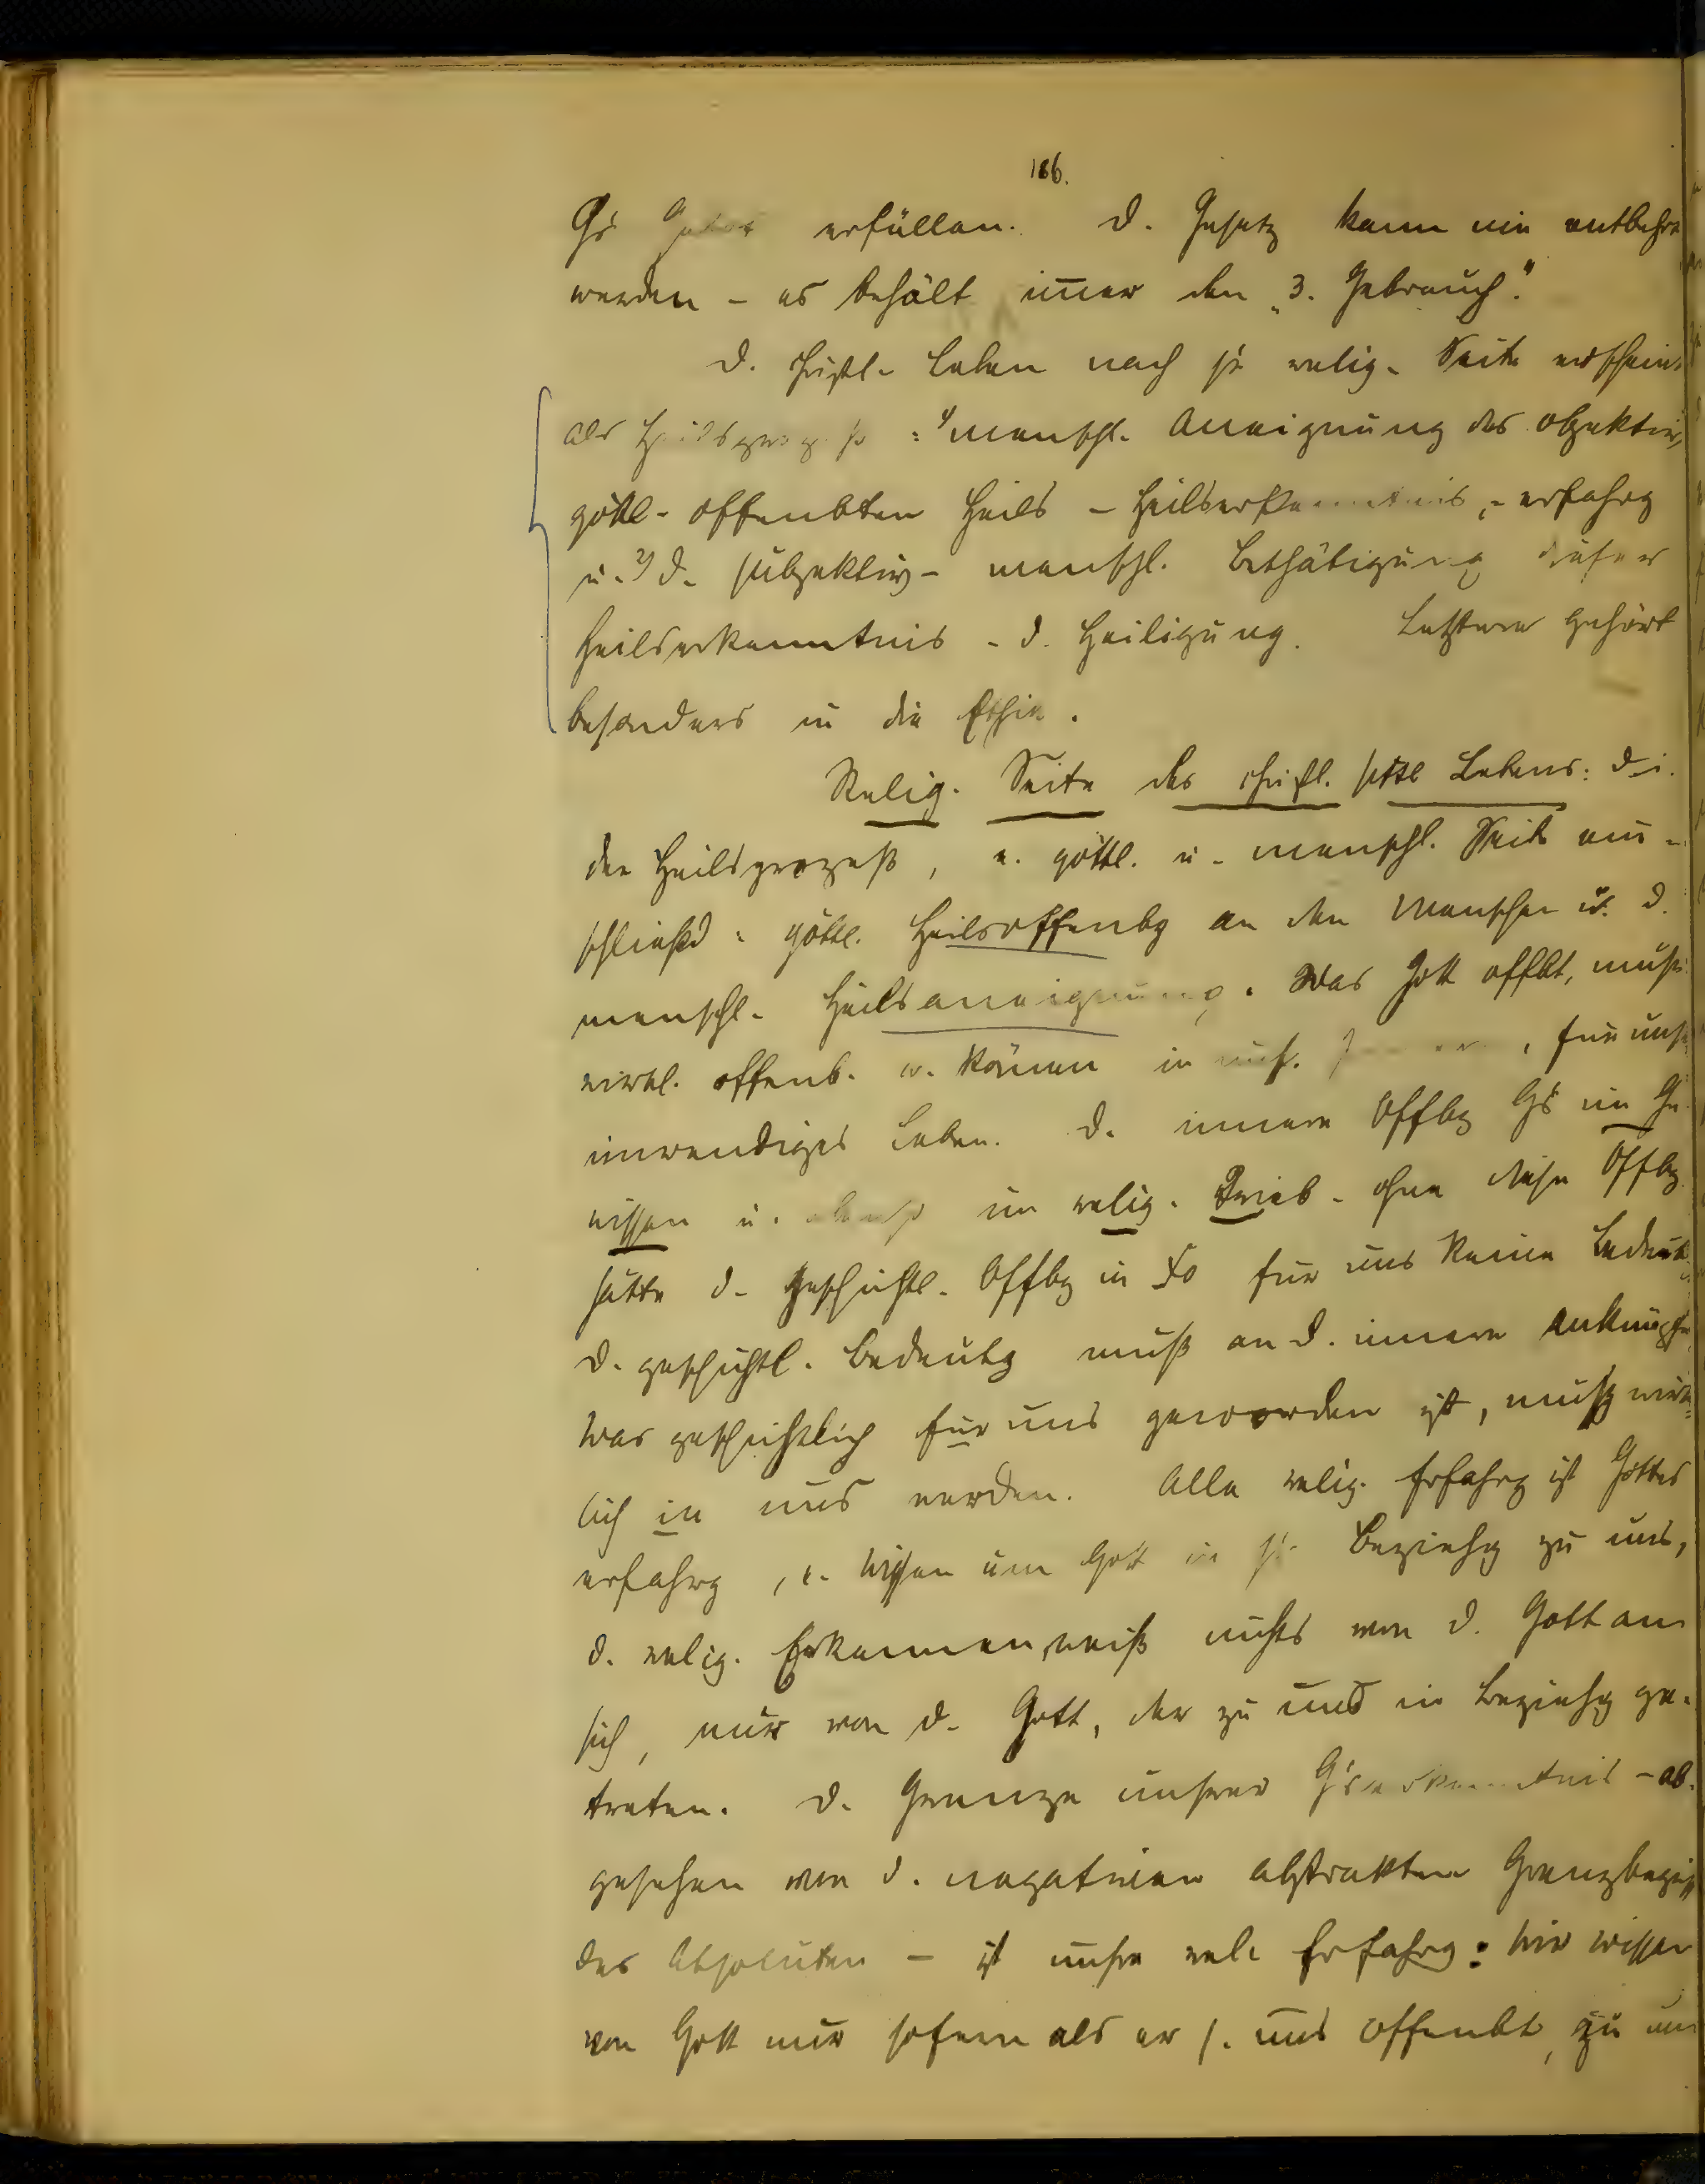 186.
Gs Gebot erfüllen. D. Gesetz kann nie entbehrt
werden – es behält im̅er den „3. Gebrauch".
D. christl. Leben nach sr. relig. Seite erscheint
als Heilsprozess: 1) menschl. Aneignung des objektiv,
göttl. offenbten Heils – Heilserkenntnis, -erfahrg
u. 2) d. subjektiv- menschl. Bethätigung dieser
Heilserkenntnis – d. Heiligung. Letztere gehört
besonders in die Ethik.
Relig. Seite des christl. sittl Lebens: d. i.
der Heilsprozeß, e. göttl. u. menschl. Seite ein-
schließd: göttl. Heilsoffenbg an den Menschen u. d.
menschl. Heilsaneignung. Was Gott offbt, muß
wirkl. offenb. w. können in uns. , für unser
inwendiges Leben. D. innere Offbg Gs im Ge-
wissen u. ebenso im relig. Trieb – ohne diese Offbg
hätte d. geschichtl. Offbg in Xo für uns keine Bedeutg
D. geschichtl. Bedeutg muß an d. innere anknüpfen
Was geschichtlich für uns geworden ist, muß wirk-
lich in uns werden. Alle relig. Erfahrg ist Gottes
erfahrg, e. Wissen um Gott in sr. Beziehg zu uns,
d. relig. Erkennen weiß nichts von d. Gott an
sich, nur von d. Gott, der zu uns in Beziehg ge-
treten. D. Grenze unsrer Gserkenntnis – ab-
gesehen von d. negativen abstrakten Grenzbegriff
des Absoluten – ist unsre rel. Erfahrg: wir wissen
von Gott nur sofern als er s. uns offenbt, zu uns